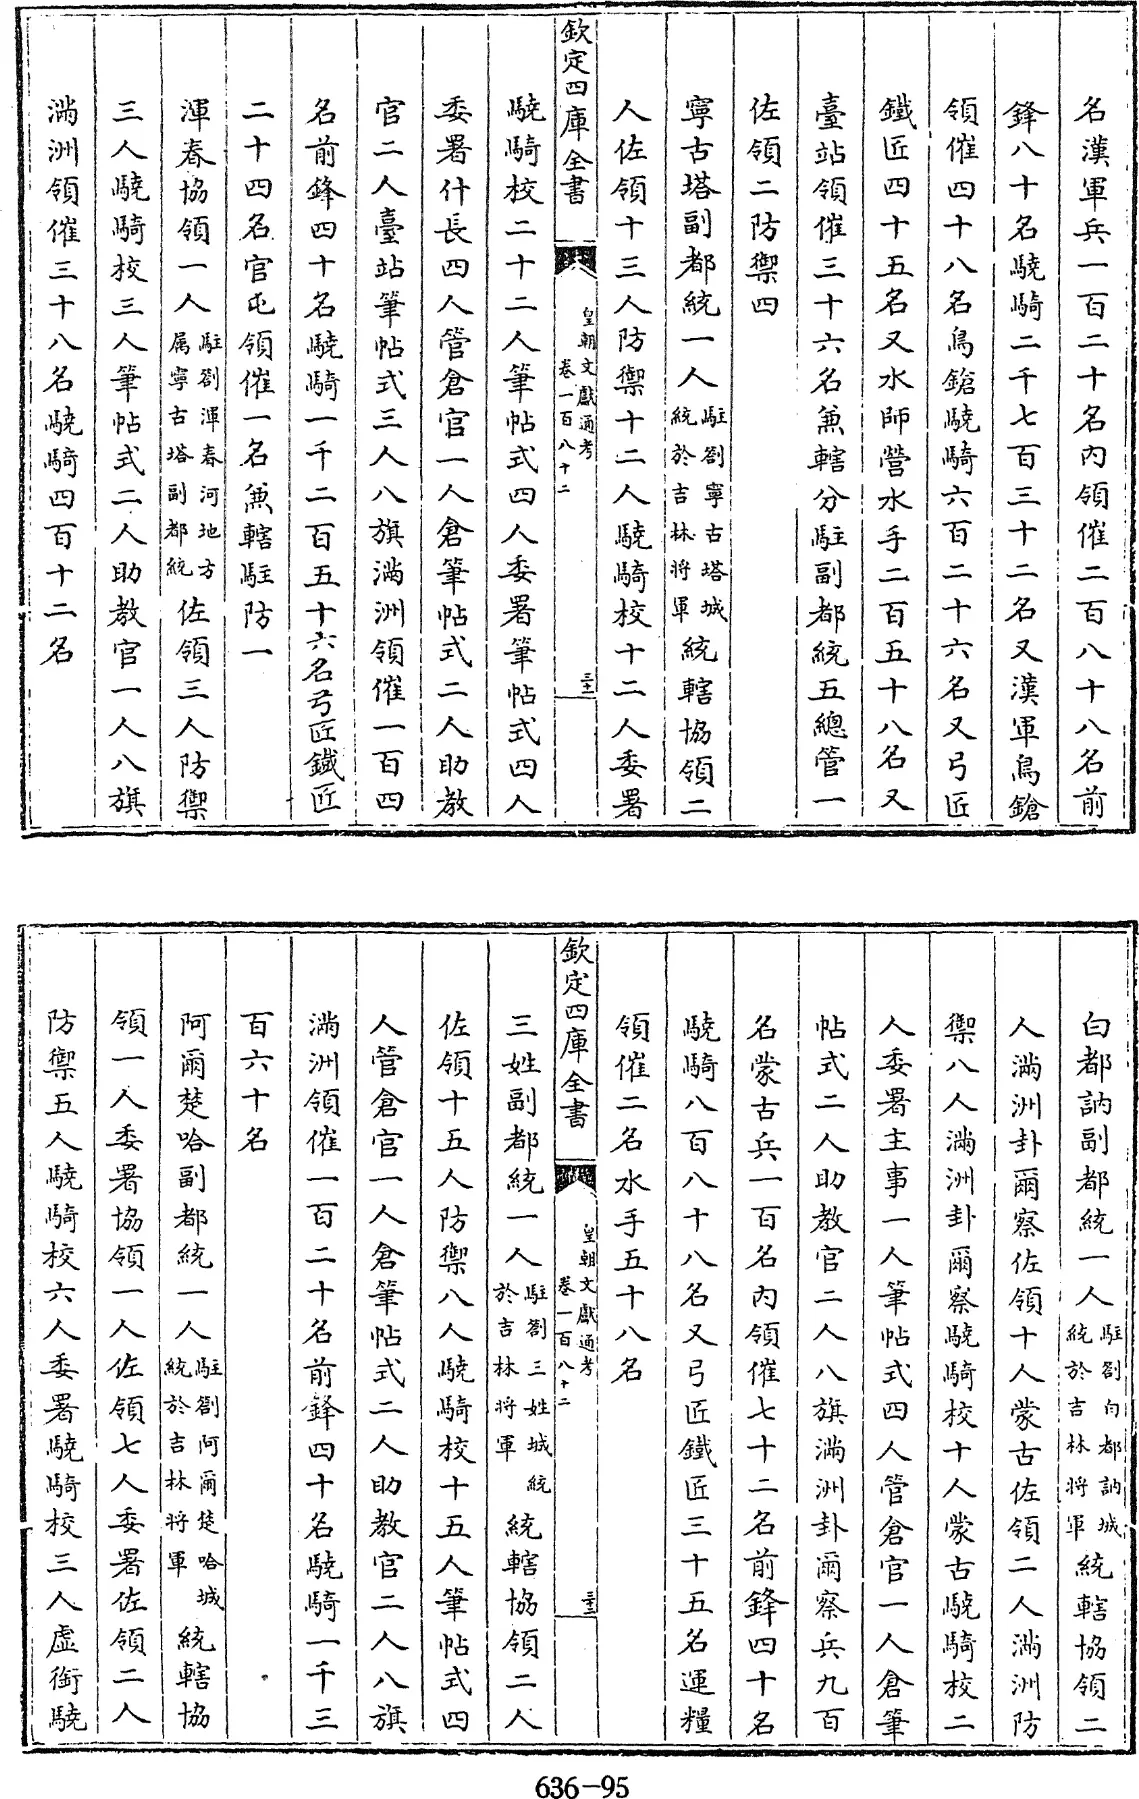 名漢軍兵一百二十名内領催二百八十八名前
鋒八十名驍騎二千七百三十二名又漢軍鳥鎗
領催四十八名鳥鎗驍騎六百二十六名又弓匠
鐵匠四十五名又水師營水手二百五十八名又
臺站領催三十六名兼轄分駐副都統五總管一
佐領二防禦四
寧古塔副都統一人駐劄寧古塔城統於吉林將軍統轄協領二
人佐領十三人防禦十二人驍騎校十二人委署
欽定四庫全書
皇朝文獻通考
卷一百八十二
三十一
驍騎校二十二人筆帖式四人委署筆帖式四人
委署什長四人管倉官一人倉筆帖式二人助教
官二人臺站筆帖式三人八旗滿洲領催一百四
名前鋒四十名驍騎一千二百五十六名弓匠鐵匠
二十四名官屯領催一名兼轄駐防一
渾春協領一人駐劄渾春河地方屬寧古塔副都統佐領三人防禦
三人驍騎校三人筆帖式二人助教官一人八旗
滿洲領催三十八名驍騎四百十二名
白都訥副都統一人駐劄白都訥城統於吉林將軍統轄協領二
人滿洲卦爾察佐領十人蒙古佐領二人滿洲防
禦八人滿洲卦爾察驍騎校十人蒙古驍騎校二
人委署主事一人筆帖式四人管倉官一人倉筆
帖式二人助教官二人八旗滿洲卦爾察兵九百
名蒙古兵一百名内領催七十二名前鋒四十名
驍騎八百八十八名又弓匠鐵匠三十五名運糧
領催二名水手五十八名
欽定四庫全書
皇朝文獻通考
卷一百八十二
三十二
三姓副都統一人駐劄三姓城統於吉林將軍統轄協領二人
佐領十五人防禦八人驍騎校十五人筆帖式四
人管倉官一人倉筆帖式二人助教官二人八旗
滿洲領催一百二十名前鋒四十名驍騎一千三
百六十名
阿爾楚哈副都統一人駐劄阿爾楚哈城統於吉林將軍統轄協
領一人委署協領一人佐領七人委署佐領二人
防禦五人驍騎校六人委署驍騎校三人虛銜驍
636-95